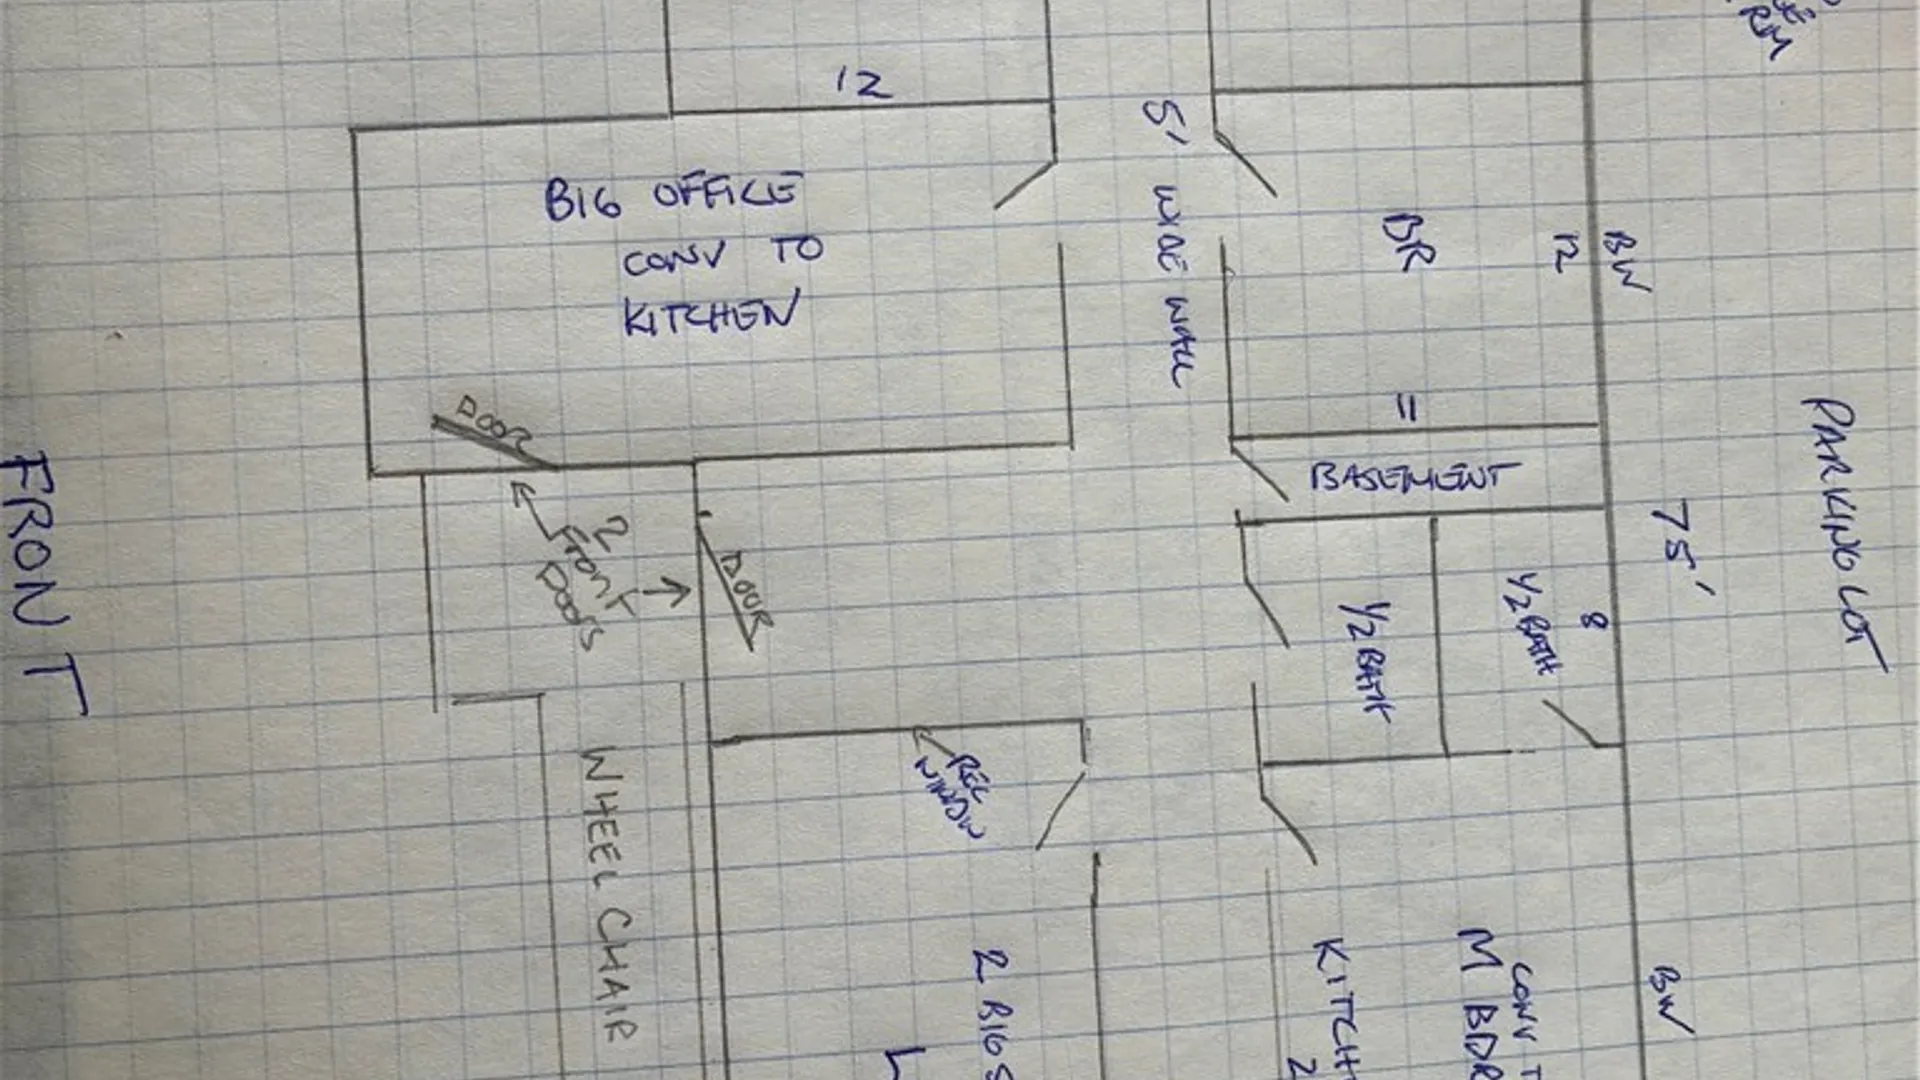 RM
12
BIG OFFICE
CONV TO
KITCHEN
5' WIDE WALL
BR
12
BW
11
BASEMENT
DOOR
2
Front
Doors
DOOR
1/2 BATH
1/2 BATH
8
75'
PARKING LOT
FRONT
REC
WINDOW
WHEEL CHAIR
2 BIG
KITCH
2
CONV T
M BDR
BW
L